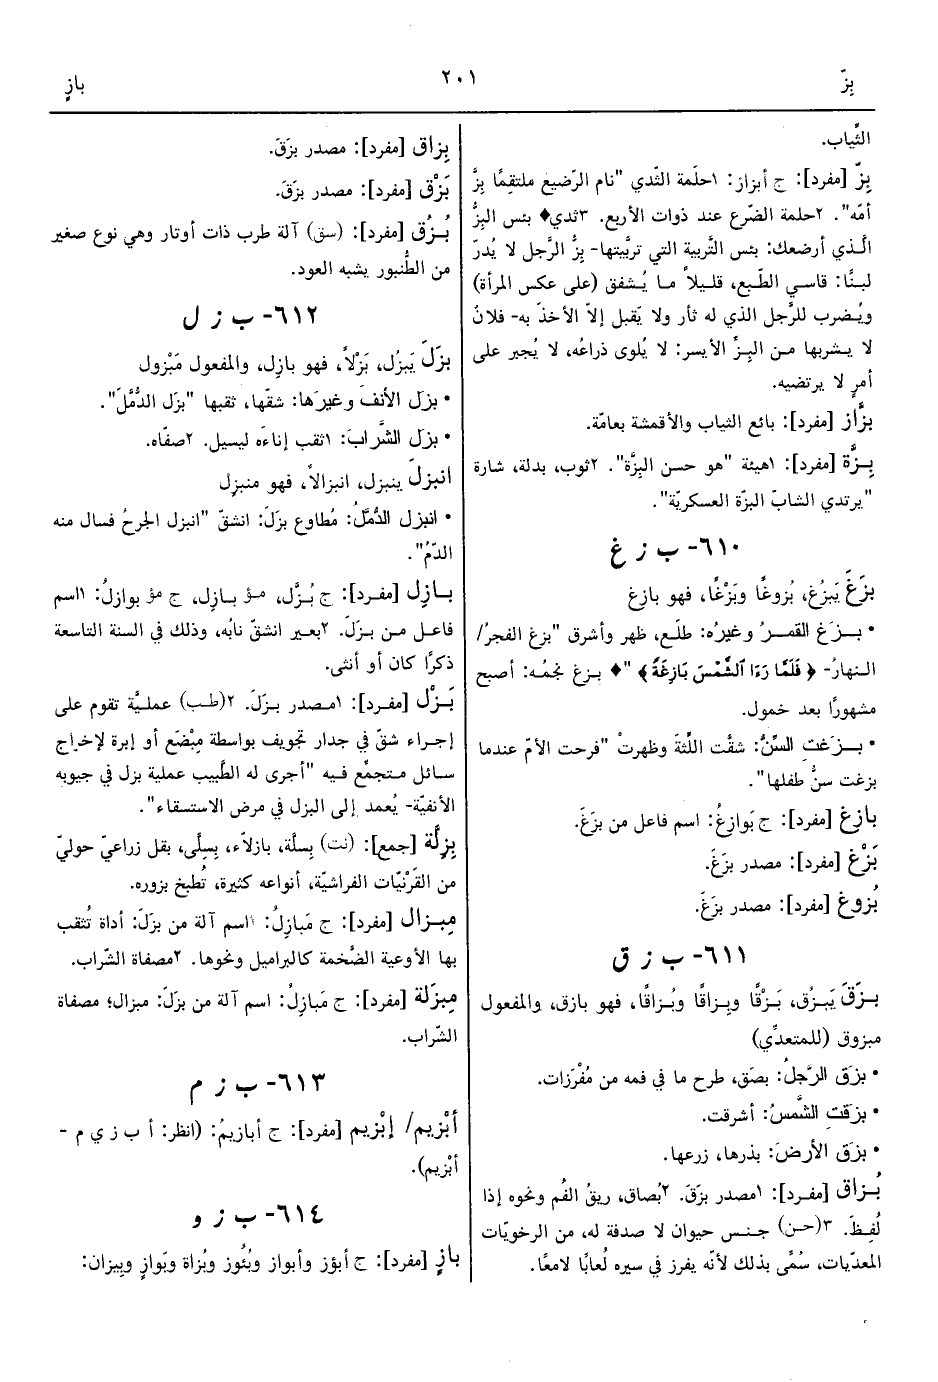 بِزّ
٢٠١
بازٍ
الثِّياب.
بِزّ [مفرد]: ج أبزاز: ١حلَمة الثدي "نام الرَّضيع ملتقِمًا بِزَّ
أمّه". ٢حلمة الضّرع عند ذوات الأربع. ٣ثدي♦ بئس البِزُّ
الَّذي أرضعك: بئس التَّربية التي تربَّيتها- بِزُّ الرَّجل لا يُدرّ
لبنًا: قاسي الطّبع، قليلاً ما يُشفق (على عكس المرأة)
ويُضرب للرَّجل الذي له ثأر ولا يَقبل إلاّ الأخذَ به- فلانٌ
لا يشربها من البِزِّ الأيسر: لا يُلوى ذراعُه، لا يُجبر على
أمرٍ لا يرتضيه.
بزَّاز [مفرد]: بائع الثياب والأقمشة بعامّة.
بِزَّة [مفرد]: ١هيئة "هو حسن البِزَّة". ٢ثوب، بدلة، شارة
"يرتدي الشابّ البزّة العسكريّة".
٦١٠- ب ز غ
بزَغَ يَبزُغ، بُزوغًا وبَزْغًا، فهو بازغ
• بـزَغ القمـرُ وغيرُه: طلَع، ظهر وأشرق "بزغ الفجرُ/
النهارُ- ﴿ فَلَمَّا رَءَا الشَّمْسَ بَازِغَةً ﴾ "♦ بـزغ نجمُه: أصبح
مشهورًا بعد خمول.
• بـزَغت السِّنُّ: شقَّت اللِّثةَ وظهرتْ "فرحت الأمّ عندما
بزغت سنُّ طفلها".
بازِغ [مفرد]: ج بَوازِغُ: اسم فاعل من بزَغَ.
بَزْغ [مفرد]: مصدر بزَغَ.
بُزوغ [مفرد]: مصدر بزَغَ.
٦١١- ب ز ق
بـزَقَ يَبـزُق، بَـزْقًا وبِـزاقًا وبُـزاقًا، فهو بازق، والمفعول
مبزوق (للمتعدِّي)
• بزَق الرَّجلُ: بصَق، طرح ما في فمه من مُفْرَزات.
• بزقت الشَّمسُ: أشرقت.
• بزَق الأرضَ: بذرها، زرعها.
بُـزاق [مفرد]: ١مصدر بزَقَ. ٢بُصاق، ريقُ الفم ونحوه إذا
لُفِـظَ. ٣(حن) جنـس حيوان لا صدفة له، من الرخويّات
المعديّات، سُمِّي بذلك لأنّه يفرز في سيره لُعابًا لامعًا.
بِزاق [مفرد]: مصدر بزَقَ.
بَزْق [مفرد]: مصدر بزَقَ.
بُـزُق [مفرد]: (سق) آلة طرب ذات أوتار وهي نوع صغير
من الطُّنبور يشبه العود.
٦١٢- ب ز ل
بزَلَ يَبزُل، بَزْلاً، فهو بازِل، والمفعول مَبْزول
• بزَل الأنفَ وغيرَها: شقّها، ثقبها "بزَل الدُّمَّلَ".
• بزَل الشَّرابَ: ١ثقب إناءَه ليسيل. ٢صفّاه.
انبزلَ ينبزل، انبزالاً، فهو منبزِل
• انبزل الدُّمَّلُ: مُطاوع بزَلَ: انشقّ "انبزل الجرحُ فسال منه
الدّمُ".
بـازِل [مفـرد]: ج بُـزَّل، مؤ بـازِل، ج مؤ بوازلُ: ١اسم
فاعل مـن بـزَلَ. ٢بعير انشقّ نابُه، وذلك في السنة التاسعة
ذكرًا كان أو أنثى.
بَـزْل [مفـرد]: ١مـصدر بـزَلَ. ٢(طب) عمليَّة تقوم على
إجـراء شقّ في جدار تجويف بواسطة مِبْضَع أو إبرة لإخراج
سـائل متـجمِّع فـيه "أجرى له الطَّبيب عملية بزل في جيوبه
الأنفيّة- يُعمد إلى البزل في مرض الاستسقاء".
بِزِلَّة [جمع]: (نت) بِسِلَّة، بازلاّء، بِسِلَّى، بقل زراعيّ حوليّ
من القَرْنيّات الفراشيّة، أنواعه كثيرة، تُطبخ بزوره.
مِبـزال [مفرد]: ج مَبازِلُ: ١اسم آلة من بزَلَ: أداة تُثقب
بها الأوعية الضّخمة كالبراميل ونحوها. ٢مصفاة الشّراب.
مِبزلة [مفرد]: ج مَبازِلُ: اسم آلة من بزَلَ: مبزال؛ مصفاة
الشّراب.
٦١٣- ب ز م
أبْزيم/ إبْزيم [مفرد]: ج أبازيمُ: (انظر: أ ب ز ي م -
أبْزيم).
٦١٤- ب ز و
بازٍ [مفرد]: ج أبؤز وأبواز وبُئُوز وبُزاة وبَوازٍ وبِيزان: